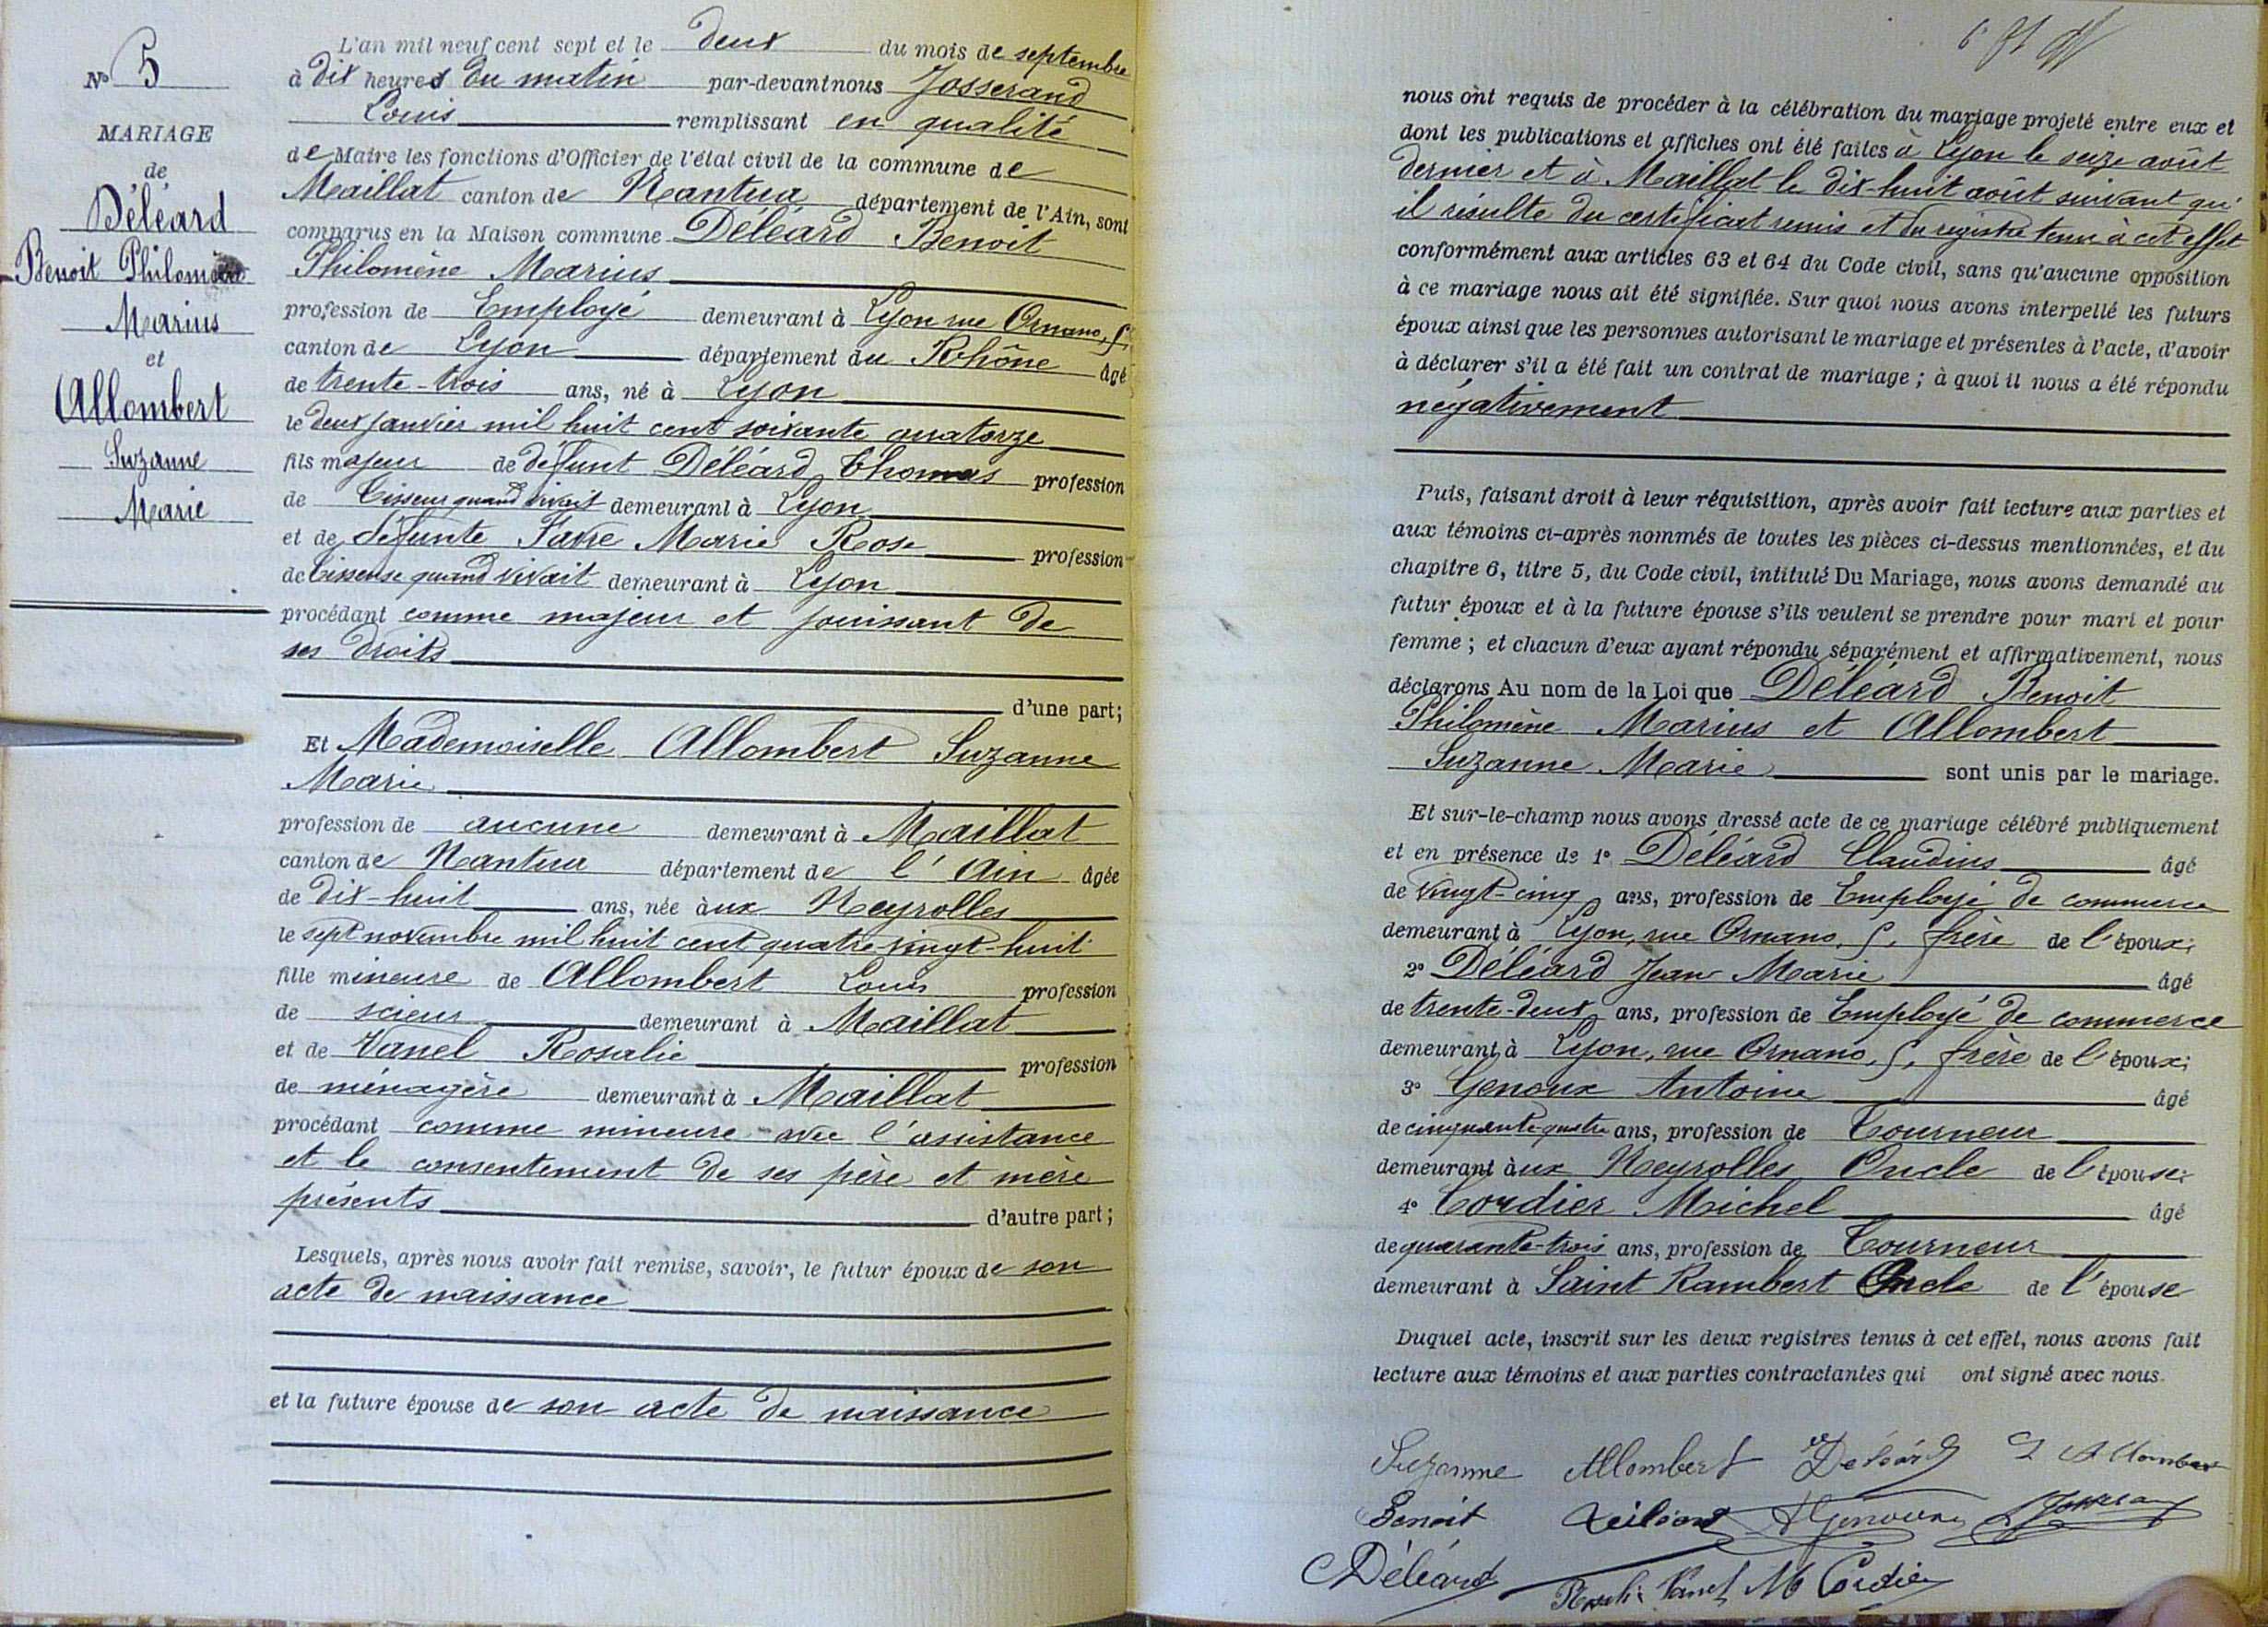 N° 5
MARIAGE
de
Déléard
Benoit Philomène
Marius
et
Allombert
Suzanne
Marie
L'an mil neuf cent sept et le deux du mois de septembre
à dix heures du matin par-devant nous Josserand
Louis remplissant en qualité
de Maire les fonctions d'Officier de l'état civil de la commune de
Maillat canton de Nantua département de l'Ain, sont
comparus en la Maison commune Déléard Benoit
Philomène Marius
profession de Employé demeurant à Lyon rue Ornano, 5,
canton de Lyon département du Rhône âgé
de trente-trois ans, né à Lyon
le deux janvier mil huit cent soixante quatorze
fils majeur de défunt Déléard Thomas profession
de Tisseur quand vivait demeurant à Lyon
et de défunte Favre Marie Rose profession
de Tisseuse quand vivait demeurant à Lyon
procédant comme majeur et jouissant de
ses droits
d'une part;
Et Mademoiselle Allombert Suzanne
Marie
profession de aucune demeurant à Maillat
canton de Nantua département de l'Ain âgée
de dix-huit ans, née àux Neyrolles
le sept novembre mil huit cent quatre vingt-huit
fille mineure de Allombert Louis profession
de scieur demeurant à Maillat
et de Vanel Rosalie profession
de ménagère demeurant à Maillat
procédant comme mineure avec l'assistance
et le consentement de ses père et mère
présents d'autre part;
Lesquels, après nous avoir fait remise, savoir, le futur époux de son
acte de naissance
et la future épouse de son acte de naissance
nous ont requis de procéder à la célébration du mariage projeté entre eux et
dont les publications et affiches ont été faites à Lyon le seize août
dernier et à Maillat le dix-huit août suivant qu'
il résulte du certificat remis et du registre tenu à cet effet
conformément aux articles 63 et 64 du Code civil, sans qu'aucune opposition
à ce mariage nous ait été signifiée. Sur quoi nous avons interpellé les futurs
époux ainsi que les personnes autorisant le mariage et présentes à l'acte, d'avoir
à déclarer s'il a été fait un contrat de mariage; à quoi il nous a été répondu
négativement
Puis, faisant droit à leur réquisition, après avoir fait lecture aux parties et
aux témoins ci-après nommés de toutes les pièces ci-dessus mentionnées, et du
chapitre 6, titre 5, du Code civil, intitulé Du Mariage, nous avons demandé au
futur époux et à la future épouse s'ils veulent se prendre pour mari et pour
femme; et chacun d'eux ayant répondu séparément et affirmativement, nous
déclarons Au nom de la Loi que Déléard Benoit
Philomène Marius et Allombert
Suzanne Marie sont unis par le mariage.
Et sur-le-champ nous avons dressé acte de ce mariage célébré publiquement
et en présence de 1° Déléard Claudius âgé
de vingt-cinq ans, profession de Employé de commerce
demeurant à Lyon, rue Ornano, 5, frère de l'époux;
2° Déléard Jean Marie âgé
de trente-deux ans, profession de Employé de commerce
demeurant à Lyon, rue Ornano, 5, frère de l'époux;
3° Genoux Antoine âgé
de cinquante-quatre ans, profession de Tourneur
demeurant àux Neyrolles Oncle de l'épouse;
4° Cordier Michel âgé
de quarante-trois ans, profession de Tourneur
demeurant à Saint Rambert Oncle de l'épouse
Duquel acte, inscrit sur les deux registres tenus à cet effet, nous avons fait
lecture aux témoins et aux parties contractantes qui ont signé avec nous.
Suzanne Allombert Déléard L Allombert
Benoit Déléard A Genoux L Josserand
Déléard Rosalie Vanel M Cordier